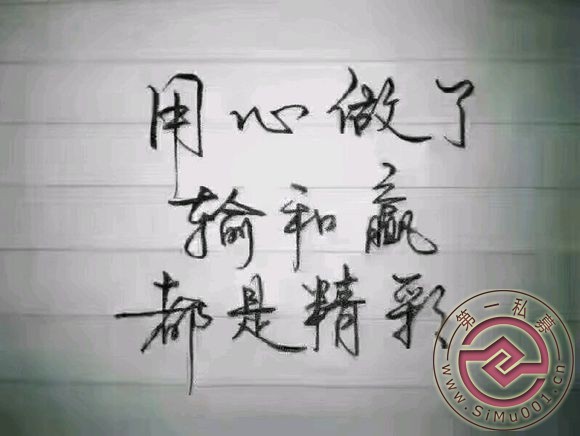 用心做了
输和赢
都是精彩
第一私募
www.SiMu001.cn